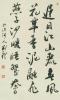 遲日江山麗春風
花草香泥融飛
燕子沙暖睡鴛鴦